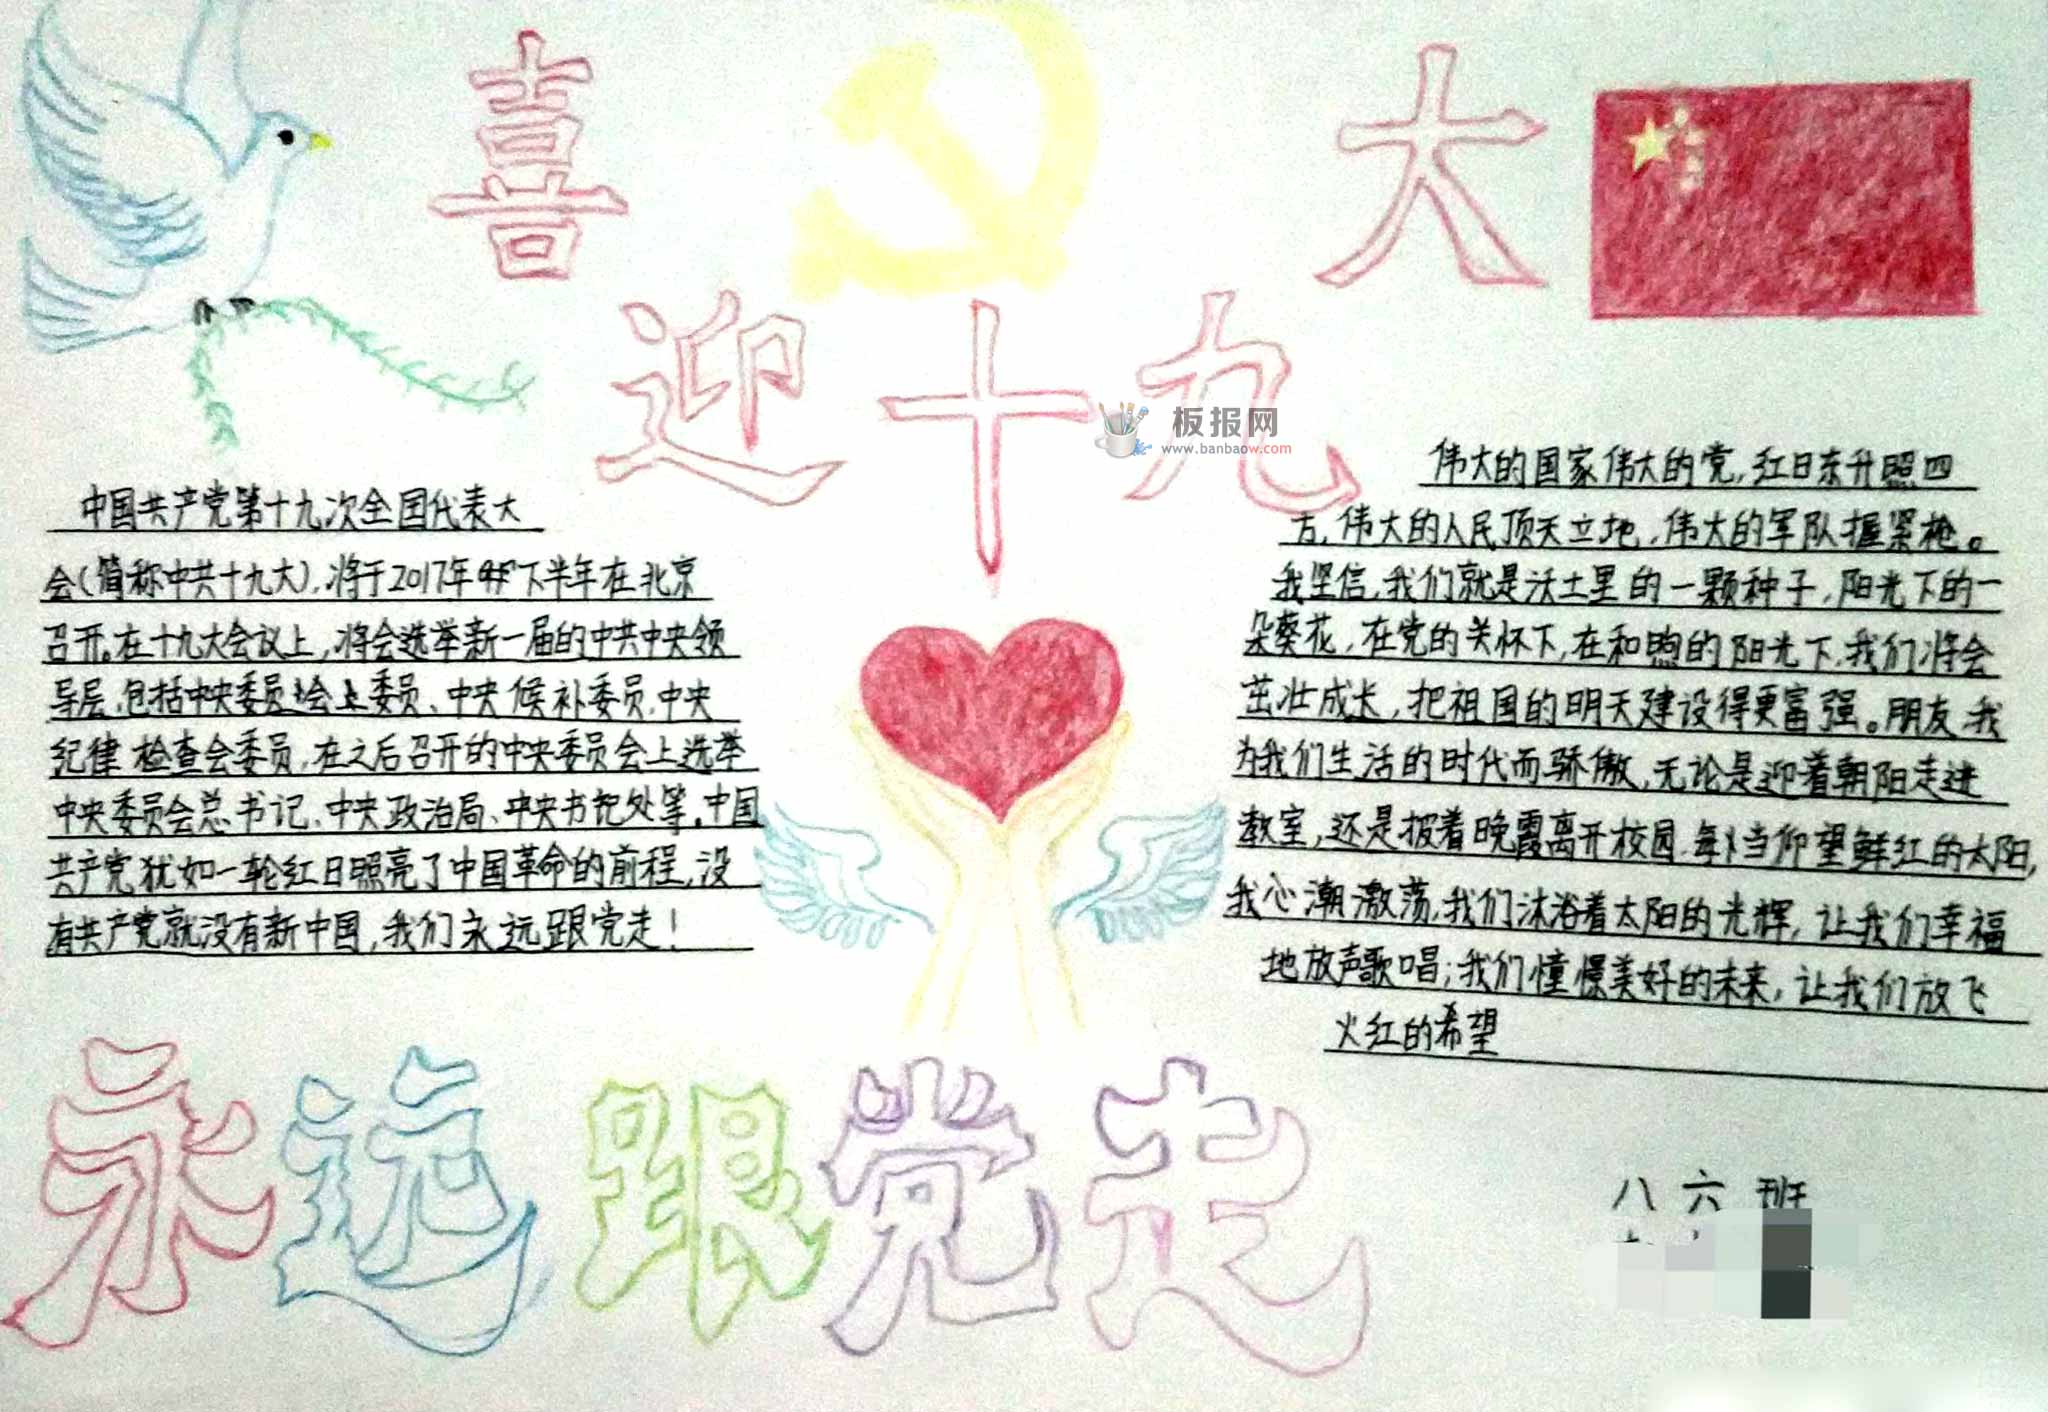 喜迎十九大
板报网
www.banbaow.com
中国共产党第十九次全国代表大
会(简称中共十九大),将于2017年下半年在北京
召开。在十九大会议上,将会选举新一届的中共中央领
导层,包括中央委员会委员、中央候补委员,中央
纪律检查会委员,在之后召开的中央委员会上选举
中央委员会总书记、中央政治局、中央书记处等。中国
共产党犹如一轮红日照亮了中国革命的前程,没
有共产党就没有新中国,我们永远跟党走!
伟大的国家伟大的党,红日东升照四
方,伟大的人民顶天立地,伟大的军队握紧枪。
我坚信,我们就是沃土里的一颗种子,阳光下的一
朵葵花,在党的关怀下,在和煦的阳光下,我们将会
茁壮成长,把祖国的明天建设得更富强。朋友,我
为我们生活的时代而骄傲,无论是迎着朝阳走进
教室,还是披着晚霞离开校园,每当仰望鲜红的太阳,
我心潮激荡,我们沐浴着太阳的光辉,让我们幸福
地放声歌唱;我们憧憬美好的未来,让我们放飞
火红的希望
永远跟党走
八六班